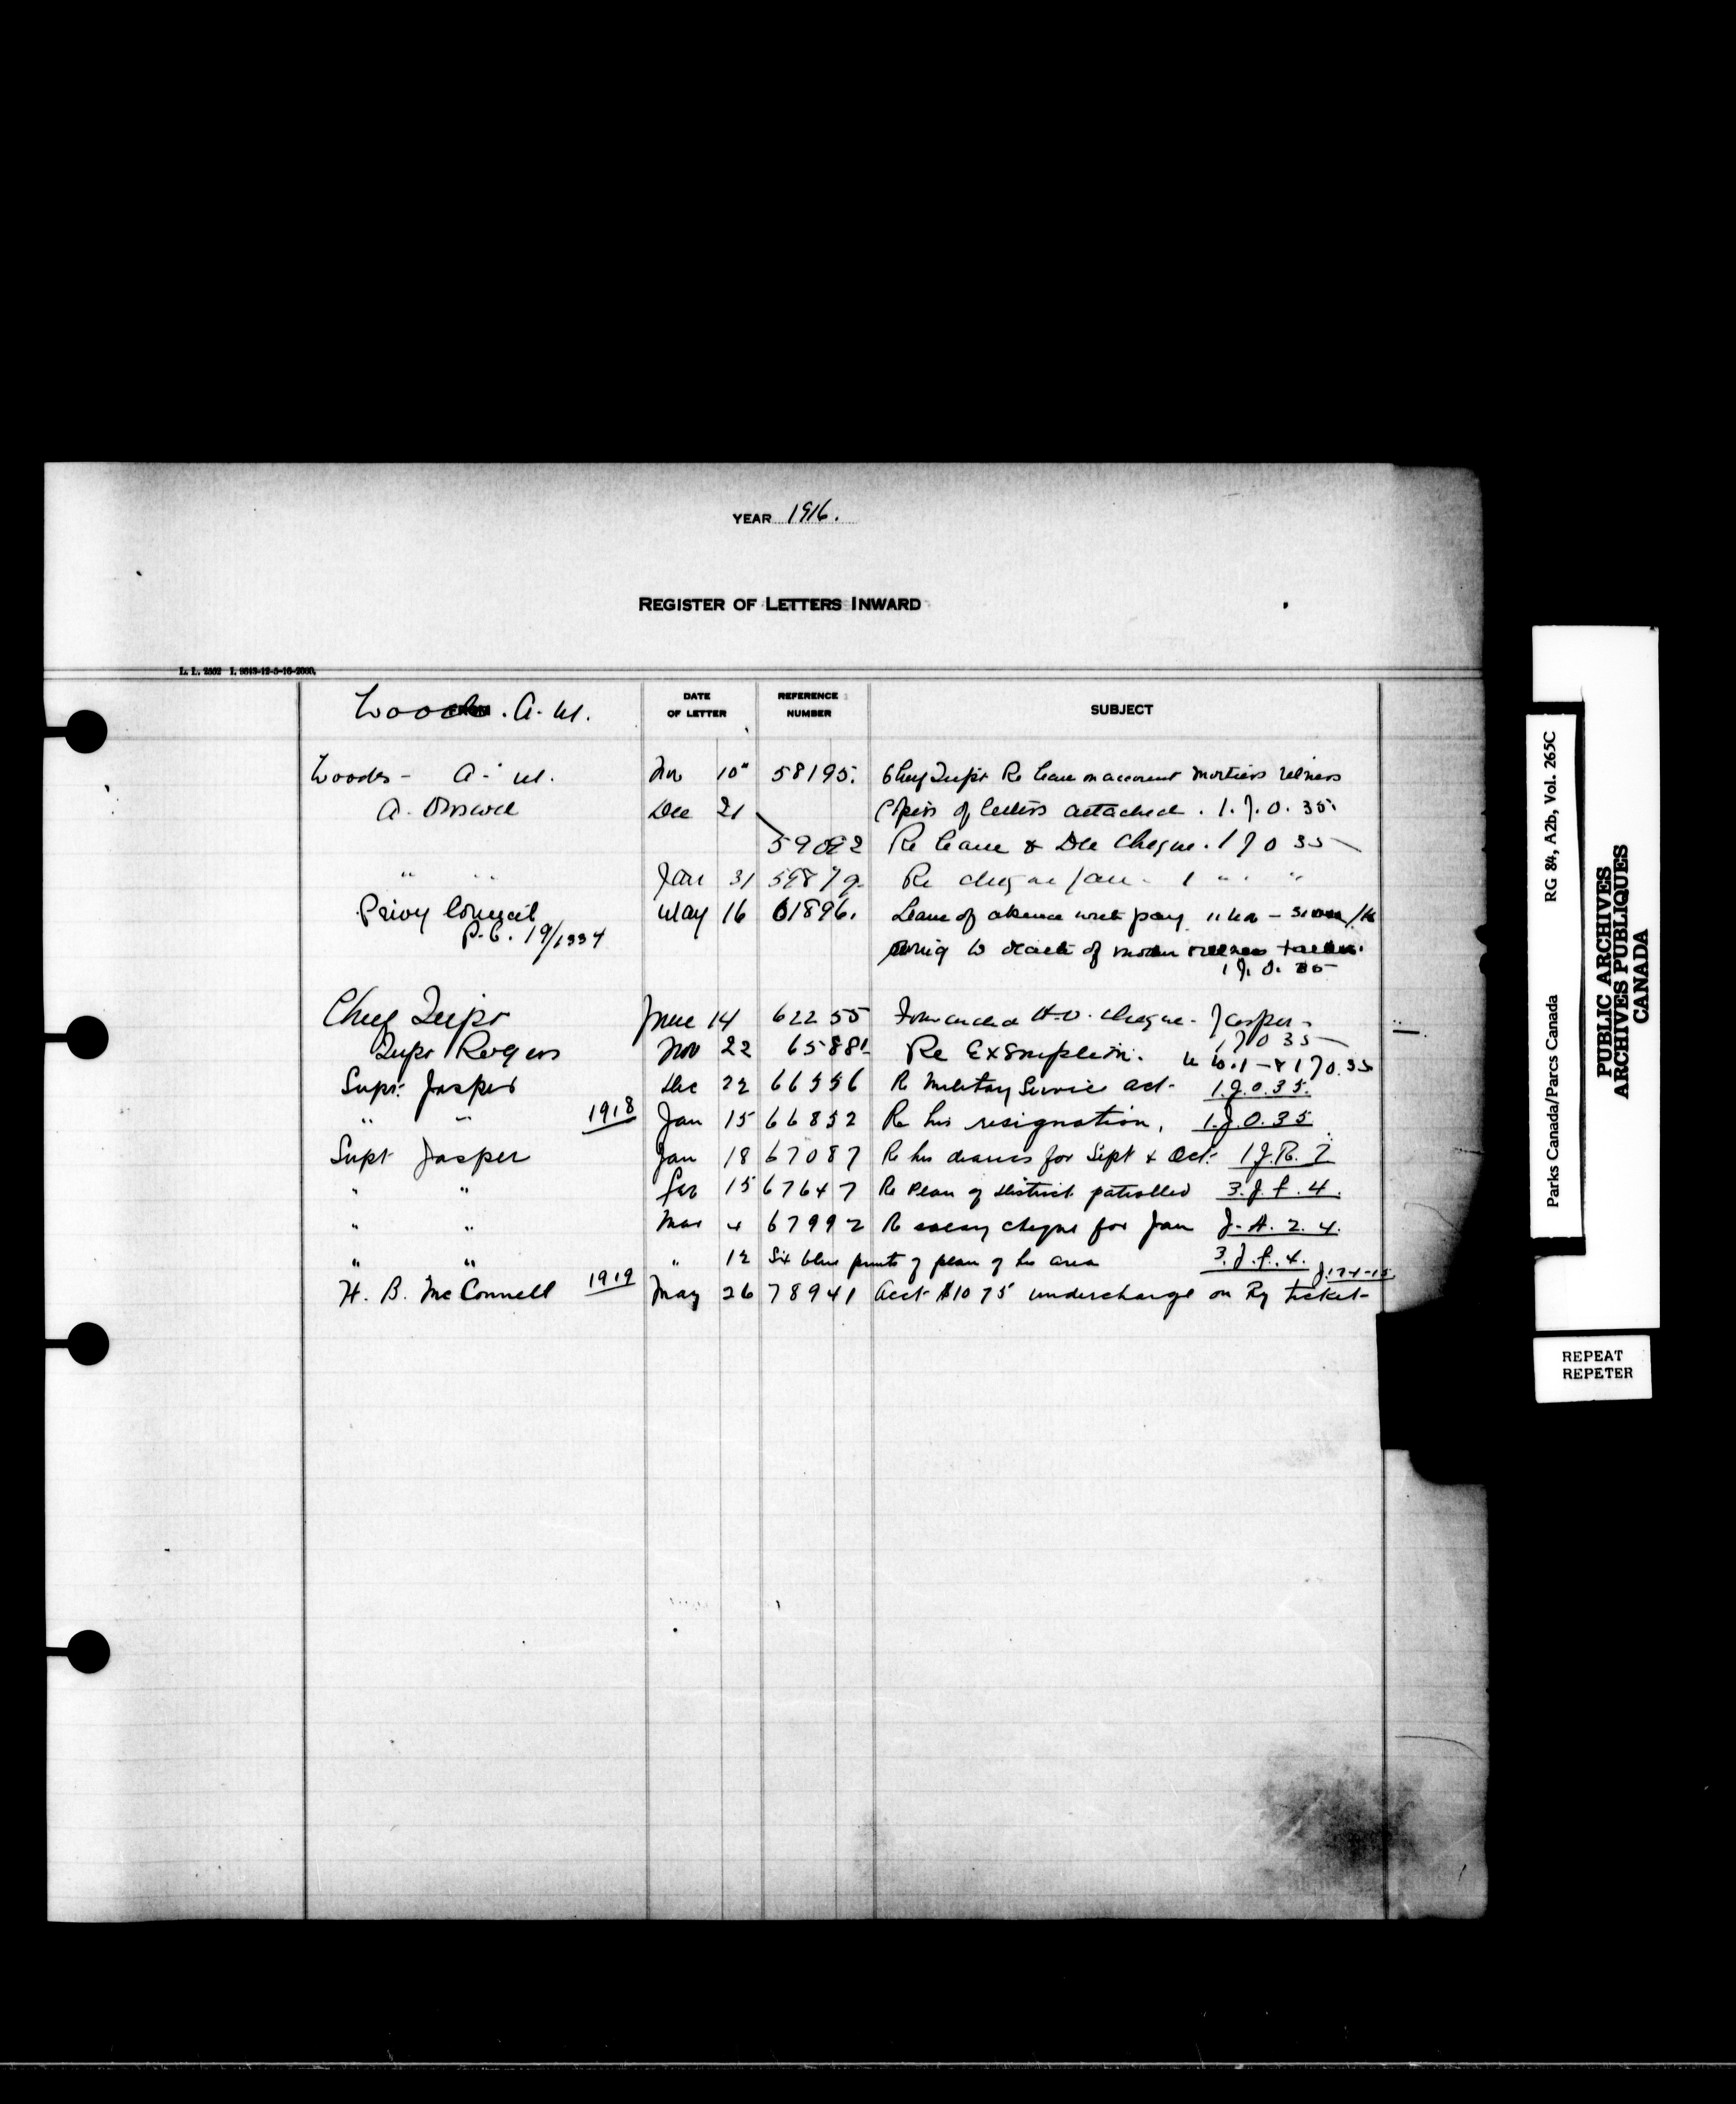 YEAR 1916.
REGISTER OF LETTERS INWARD
L. L. 2552
FROM
Woods. A. W.
DATE OF LETTER
REFERENCE NUMBER
SUBJECT
Woods - A. W. Nov 10" 58195. Chief Supt Re leave on account Mothers illness
A. Dec 21 Copies of letters attached. 1. J. O. 35.
59082 Re leave & Dec Cheque. 1 J O 35
" " Jan 31 Re cheque Jan - 1 " " "
Privy Council May 16 61896. Leave of absence with pay
P.C. 19/1334 owing to death of mother
1 J. O. 35
Chief Supt June 14 62255 Forwarded Cheque - Jasper -
1 J O 35
Supt Rogers Nov 22 65881 Re Exemption. 1 J O. 35
Supt. Jasper Dec 22 66556 Re Military Service act - 1. J. O. 35.
" " 1918 Jan 15 66852 Re his resignation, 1. J. O. 35
Supt Jasper Jan 18 67087 Re his diaries for Sept & Oct. 1 J. R. 7
" " Feb 15 67647 Re Plan of District patrolled 3. J. P. 4.
" " Mar 4 67992 Re salary cheque for Jan J. A. 2. 4.
" " " 12 Six blue prints of plan of his area 3. J. P. 4.
H. B. McConnell 1919 May 26 78941 Acct $10 75 undercharge on Ry ticket -
Parks Canada/Parcs Canada RG 84, A2b, Vol. 265C
PUBLIC ARCHIVES
ARCHIVES PUBLIQUES
CANADA
REPEAT
REPETER